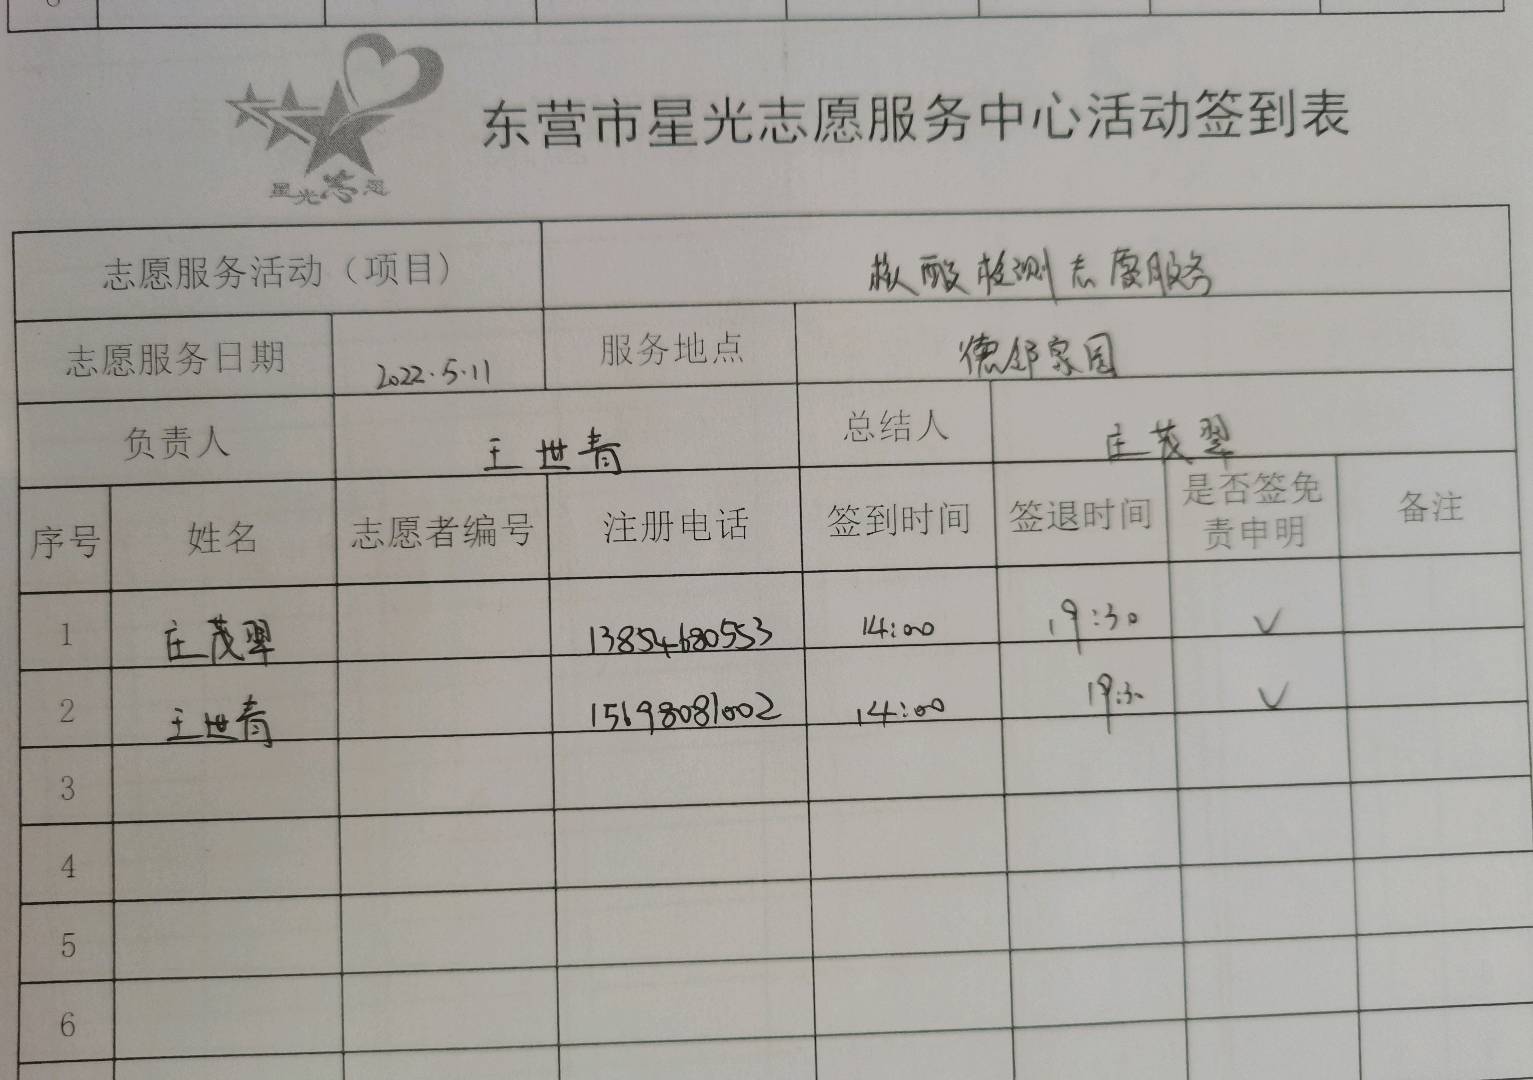 星光志愿
东营市星光志愿服务中心活动签到表
志愿服务活动（项目） 核酸检测志愿服务
志愿服务日期 2022.5.11 服务地点 德邻家园
负责人 王世青 总结人 庄茂翠
序号 姓名 志愿者编号 注册电话 签到时间 签退时间 是否签免责申明 备注
1 庄茂翠 13854680553 14:00 19:30 ✓
2 王世青 15698081002 14:00 19:30 ✓
3
4
5
6